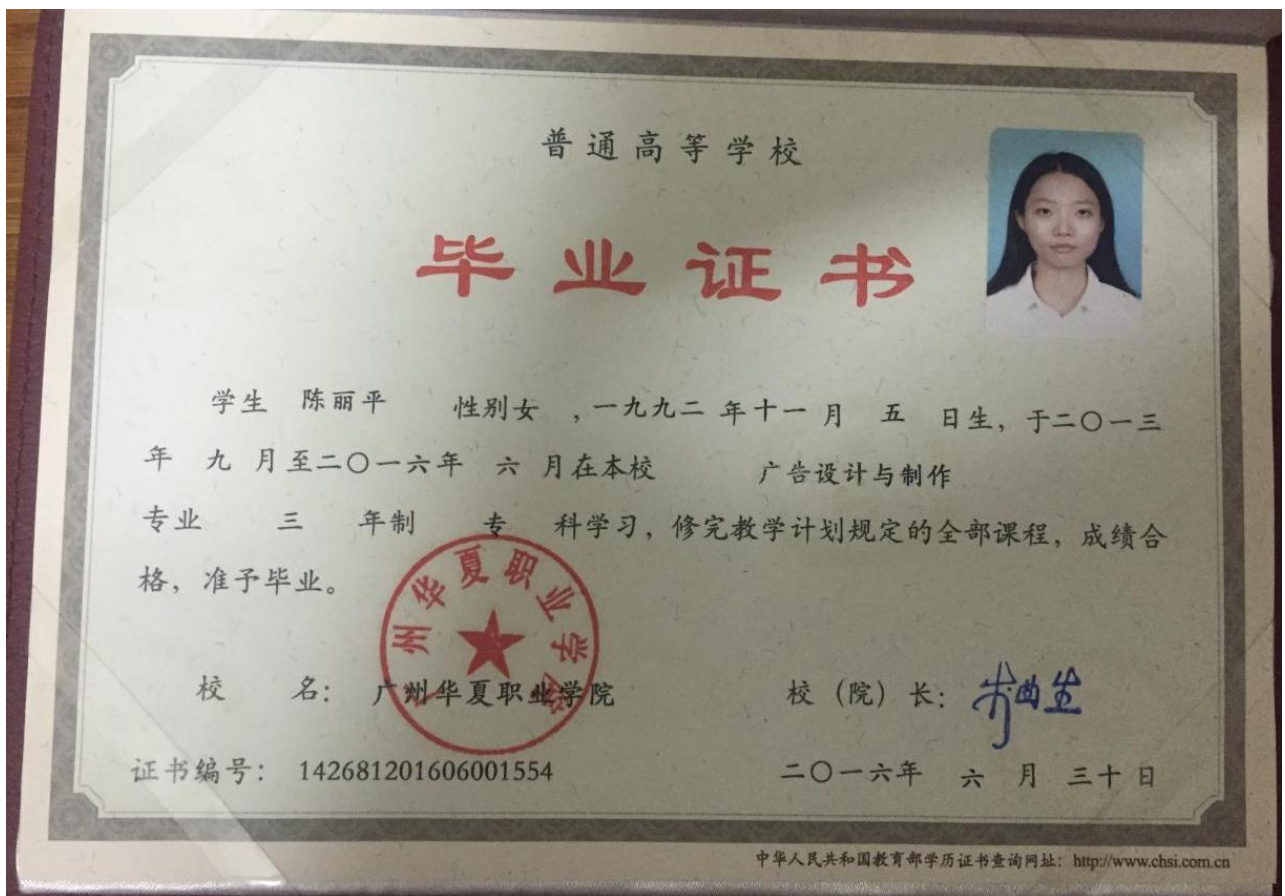 普通高等学校
毕业证书
学生 陈丽平 性别女 ,一九九二 年十一 月 五 日生，于二〇一三
年 九 月至二〇一六年 六 月在本校 广告设计与制作
专业 三 年制 专 科学习，修完教学计划规定的全部课程，成绩合
格，准予毕业。
广州华夏职业学院
校 名：广州华夏职业学院 校（院）长：
证书编号：142681201606001554 二〇一六年 六 月 三十 日
中华人民共和国教育部学历证书查询网址：http://www.chsi.com.cn